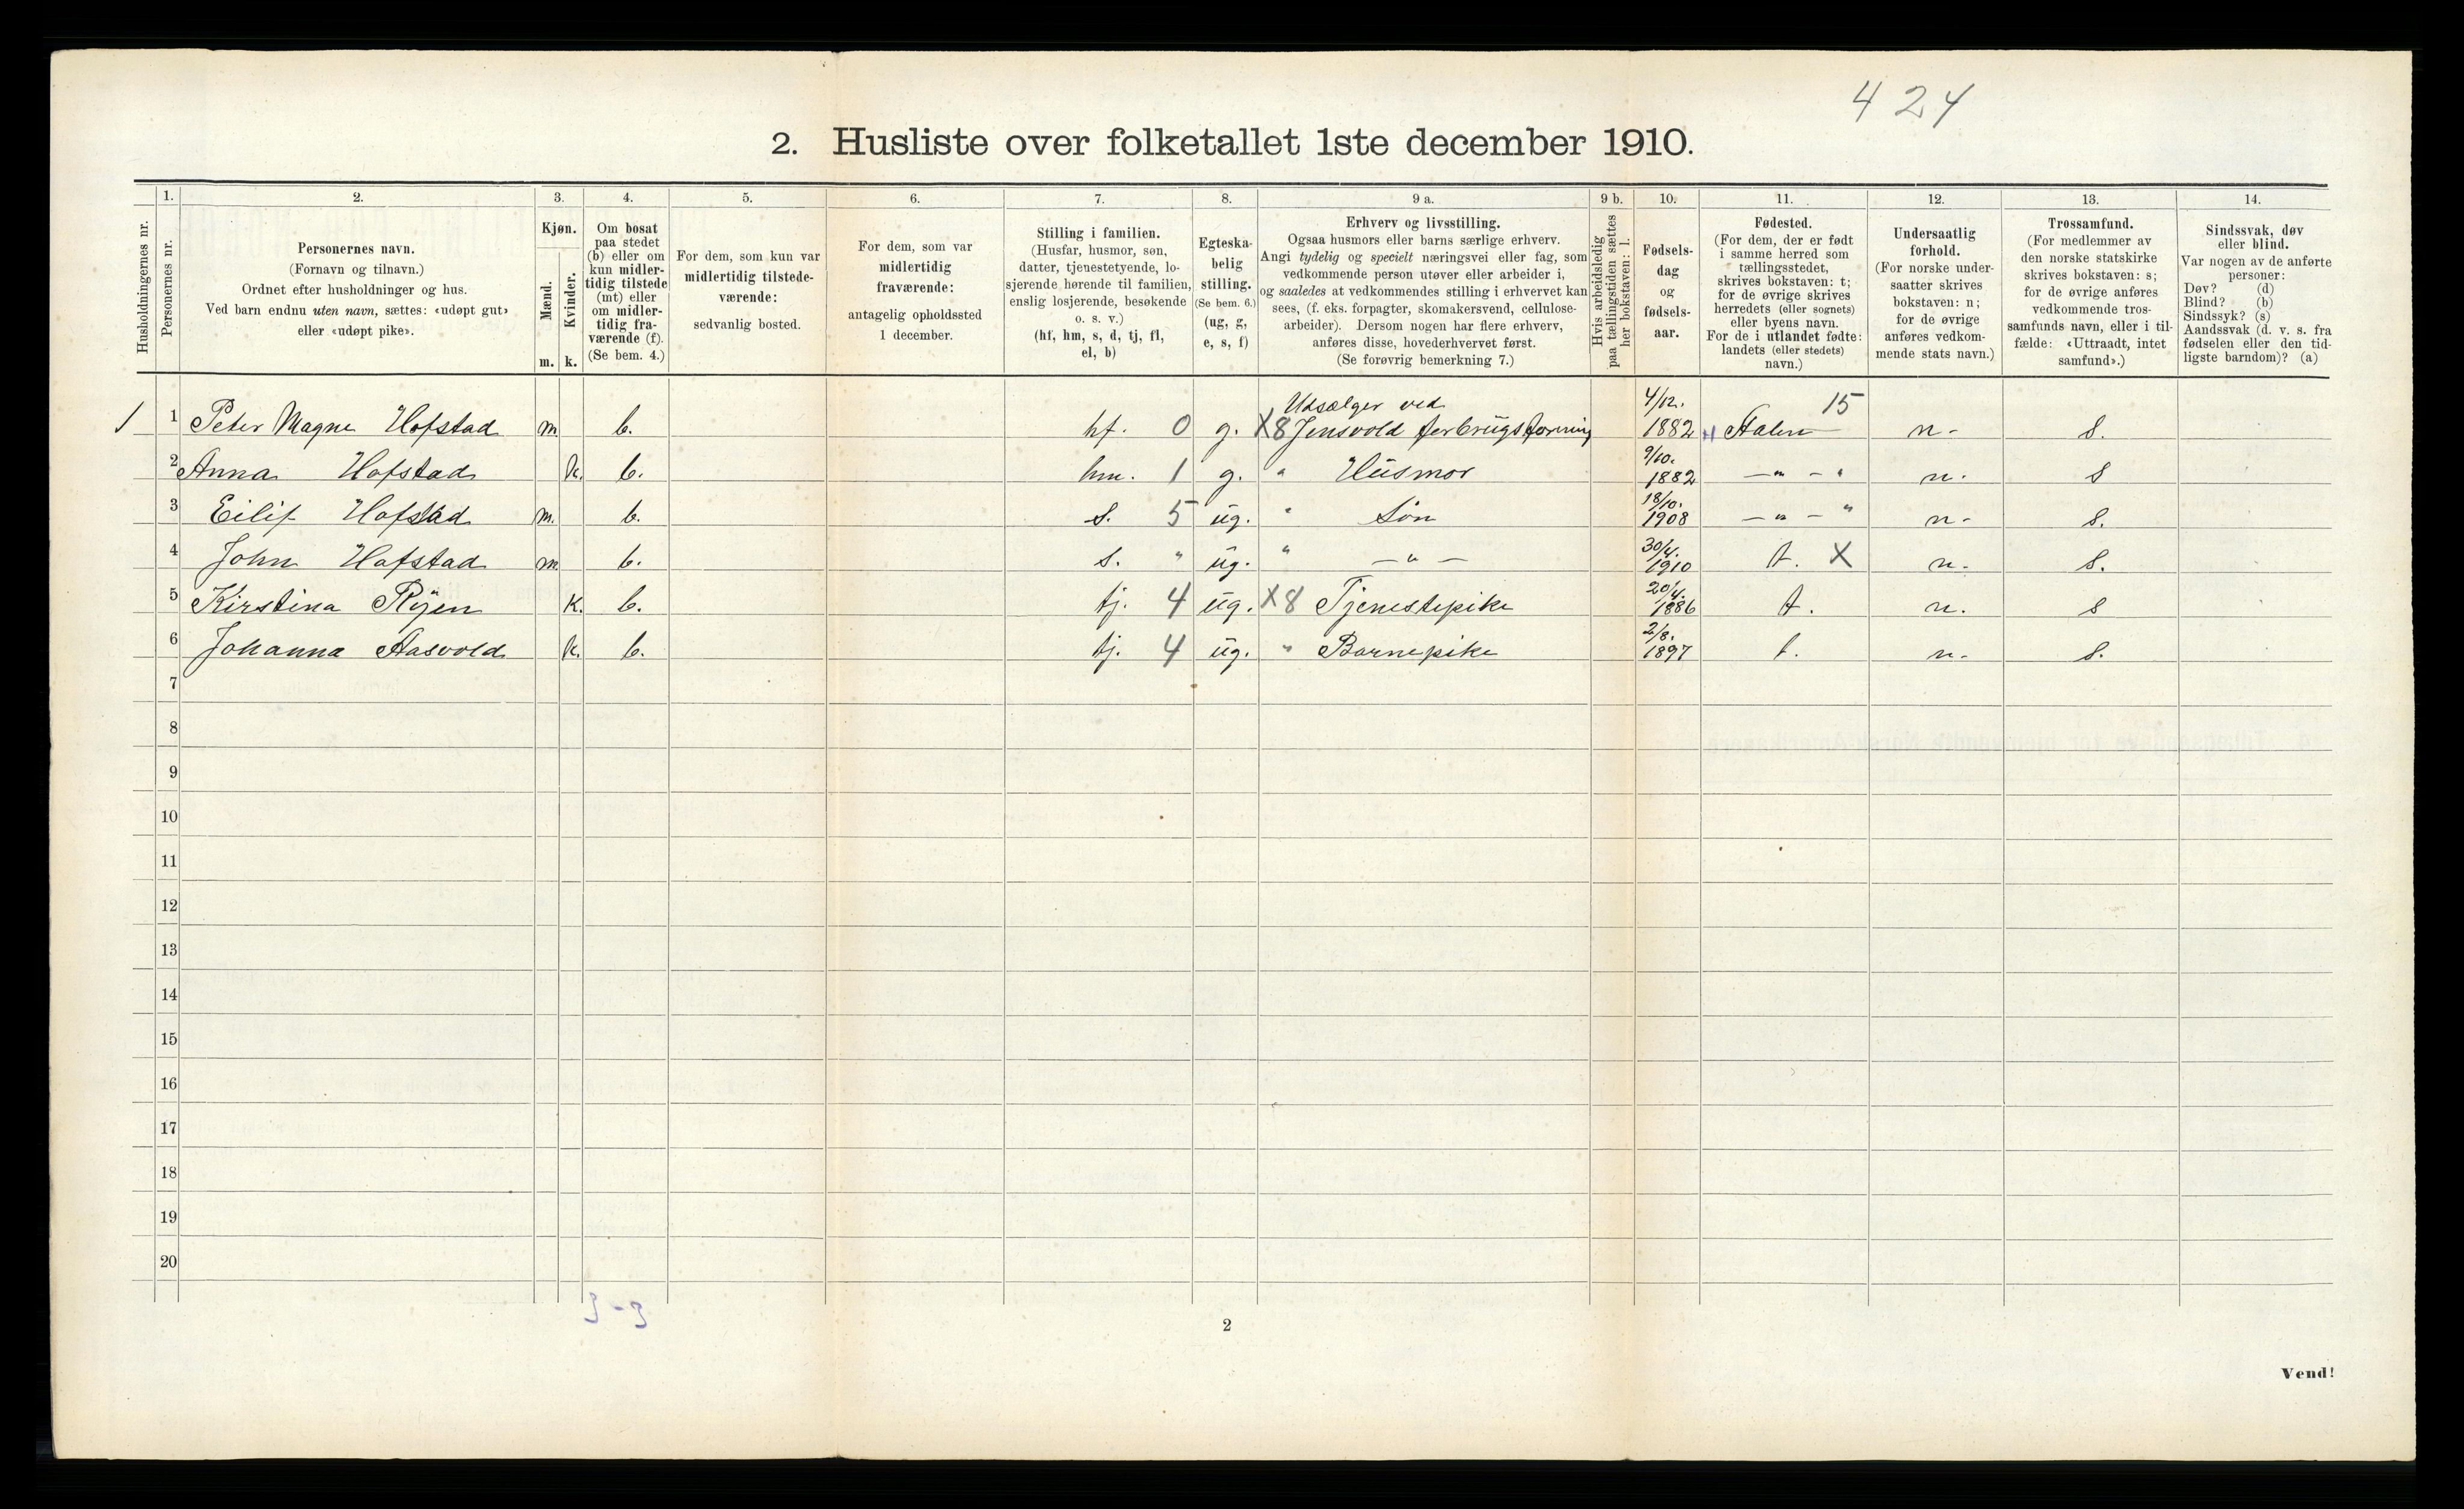 424
2. Husliste over folketallet 1ste december 1910.
Husholdningernes nr.
1.
Personernes nr.
2.
Personernes navn.
(Fornavn og tilnavn.)
Ordnet efter husholdninger og hus.
Ved barn endnu uten navn, sættes: «udøpt gut»
eller «udøpt pike».
3.
Kjøn.
Mænd.
m.
Kvinder.
k.
4.
Om bosat
paa stedet
(b) eller om
kun midler-
tidig tilstede
(mt) eller
om midler-
tidig fra-
værende (f).
(Se bem. 4.)
5.
For dem, som kun var
midlertidig tilstede-
værende:
sedvanlig bosted.
6.
For dem, som var
midlertidig
fraværende:
antagelig opholdssted
1 december.
7.
Stilling i familien.
(Husfar, husmor, søn,
datter, tjenestetyende, lo-
sjerende hørende til familien,
enslig losjerende, besøkende
o. s. v.)
(hf, hm, s, d, tj, fl,
el, b)
8.
Egteska-
belig
stilling.
(Se bem. 6.)
(ug, g,
e, s, f)
9 a.
Erhverv og livsstilling.
Ogsaa husmors eller barns særlige erhverv.
Angi tydelig og specielt næringsvei eller fag, som
vedkommende person utøver eller arbeider i,
og saaledes at vedkommendes stilling i erhvervet kan
sees, (f. eks. forpagter, skomakersvend, cellulose-
arbeider). Dersom nogen har flere erhverv,
anføres disse, hovederhvervet først.
(Se forøvrig bemerkning 7.)
9 b.
Hvis arbeidsledig
paa tællingstiden sættes
her bokstaven: l.
10.
Fødsels-
dag
og
fødsels-
aar.
11.
Fødested.
(For dem, der er født
i samme herred som
tællingsstedet,
skrives bokstaven: t;
for de øvrige skrives
herredets (eller sognets)
eller byens navn.
For de i utlandet fødte:
landets (eller stedets)
navn.)
12.
Undersaatlig
forhold.
(For norske under-
saatter skrives
bokstaven: n;
for de øvrige
anføres vedkom-
mende stats navn.)
13.
Trossamfund.
(For medlemmer av
den norske statskirke
skrives bokstaven: s;
for de øvrige anføres
vedkommende tros-
samfunds navn, eller i til-
fælde: «Uttraadt, intet
samfund».)
14.
Sindssvak, døv
eller blind.
Var nogen av de anførte
personer:
Døv? (d)
Blind? (b)
Sindssyk? (s)
Aandssvak (d. v. s. fra
fødselen eller den tid-
ligste barndom)? (a)
Udsælger ved 4/12. 15
1 1 Peter Magne Hofstad m. b. hf. 0 g. X8 Jensvold forbrugsforning 1882 Aalen n. s.
9/10.
2 Anna Hofstad k. b. hm. 1 g. " Husmor 1882 — " — " n. s
18/10.
3 Eilif Hofstad m. b. s. 5 ug. " Søn 1908 — " — " n. s.
30/4.
4 John Hofstad m. b. s. " ug. " — " — 1910 t. X n. s.
20/4.
5 Kirstina Ryen k. b. tj. 4 ug. X8 Tjenestepike 1886 t. n. s
2/8.
6 Johanna Aasvold k. b. tj. 4 ug. " Barnepike 1897 t. n. s.
7
8
9
10
11
12
13
14
15
16
17
18
19
20
3 - 3
2
Vend!